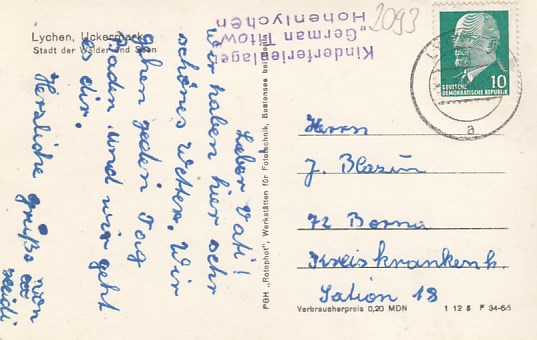 Lychen, Uckermark
Stadt der Wälder und Seen
Kinderferienlager
„German Titow"
Hohenlychen
2093
10
DEUTSCHE
DEMOKRATISCHE REPUBLIK
a
Lieber Vati!
Wir haben hier sehr
schönes Wetter. Wir
gehen jeden Tag
baden und wie geht
es dir.
Herzliche Grüße von
Heidi
PGH „Rotophot", Werkstätten für Fototechnik, Bestensee bei Berlin
Herrn
J. Blazin
72 Borna
Kreiskrankenh.
Sation 18
Verbraucherpreis 0,20 MDN
1 12 8 F 34-65